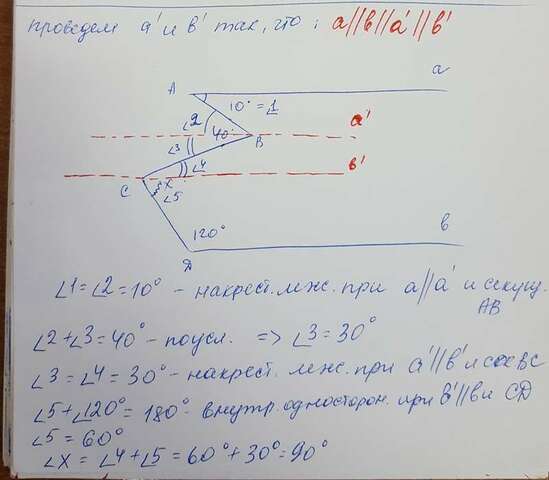 проведем a' и b' так, что: a||b||a'||b'
A
a
10° = ∠1
∠2
a'
∠3
40°
B
∠4
b'
C
x
∠5
120°
b
D
∠1 = ∠2 = 10° - накрест. леж. при a||a' и секущ.
AB
∠2 + ∠3 = 40° - по усл. => ∠3 = 30°
∠3 = ∠4 = 30° - накрест. леж. при a'||b' и сек BC
∠5 + ∠120° = 180° - внутр. односторон. при b'||b и CD
∠5 = 60°
∠x = ∠4 + ∠5 = 60° + 30° = 90°